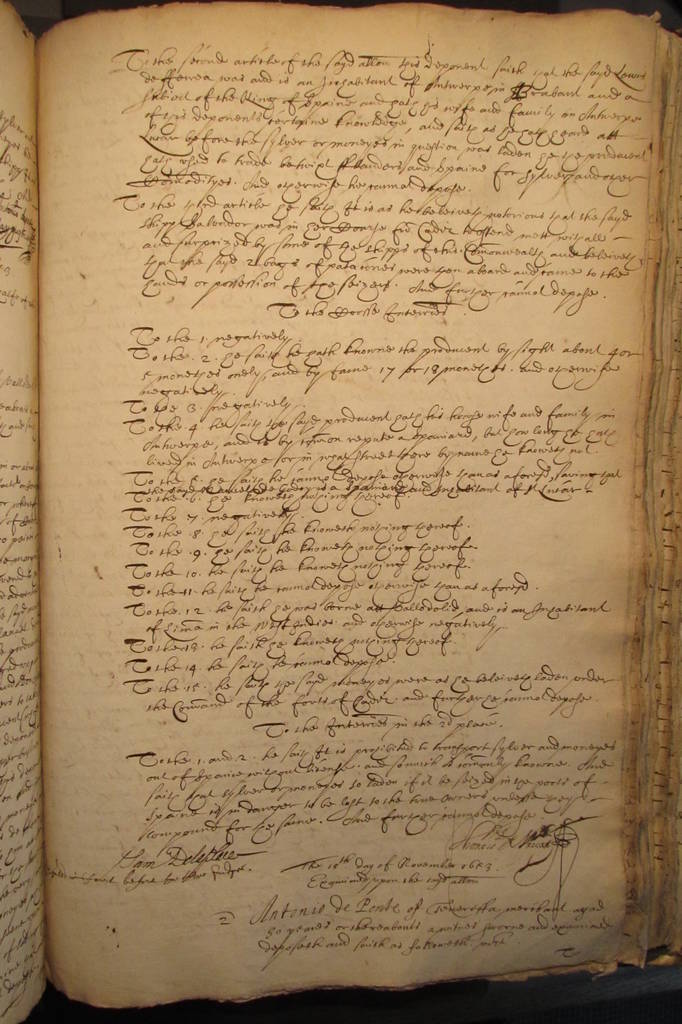 To the second article of the sayd allon this deponent saith that the sayd Lewis
de fferrea was and is an Inhabitant of Antwerpe in Brabant and a
subiect of the King of Spaine and hath his wife and family in Antwerpe
of this deponents certaine knowledge, and saith as he hath heard att
Lucar before the sylver or moneyes in question was laden he the producent
hath used to trade betwixt fflanders and Spaine for sylver and other
Commodityes. And otherwise he cannot depose.
To the third article he saith It is as he beleiveth notorious that the sayd
shipp Salvador was in her Course from Cadiz to Ostend mett withall
and surprized by some of the shipps of this Commonwealth and beleiveth
that the sayd 2 bags of patacones were then aboard and came to the
hands or possession of the seizers. And further cannot depose.
To the Crosse Interries.
To the 1. negatively.
To the .2. he saith he hath knowne the producent by sight about 4 or
5 monethes onely, and by fame 17 or 18 monethes. and otherwise
negatively.
To the 3. negatively.
To the .4. he saith the sayd producent hath his house wife and family in
Antwerpe, and is by common repute a Spaniard, but how long he hath
lived in Antwerpe or in what streete there by name he knoweth not.
To the 5. he saith he cannot depose otherwise than as aforesd, saving that
the sayd is a Spaniard and Inhabitant of St Lucar.
To the .6. he knoweth nothing thereof.
To the 7. negatively.
To the .8. he saith he knoweth nothing thereof.
To the .9. he saith he knoweth nothing thereof.
To the 10. he saith he knoweth nothing thereof.
To the 11. he saith he cannot depose otherwise than as aforesd.
To the .12. he saith he was borne att Valledolid and is an Inhabitant
of Lima in the West Indies. and otherwise negatively.
To the 13. he saith he knoweth nothing thereof.
To the 14. he saith he cannot depose.
To the 15. he saith the sayd moneyes were as he beleiveth laden under
the Command of the forts of Cadiz. and further he cannot depose.
To the Interries in the 2d place.
To the 1. and 2. he saith It is prohibited to transport sylver and moneyes
out of Spaine without license. and soe much is comonly knowne. And
saith that sylver or moneyes so laden if it be seized in the ports of
Spaine is in danger to be lost to the true owners unlesse they
compound for the same. And further cannot depose.
The 18th day of November 1653.
Examined upon the sayd allon
2 Antonio de Ponte of Teneriffa merchant aged
30 yeares or thereabouts a witnes sworne and examined
deposeth and saith as followeth. vizt